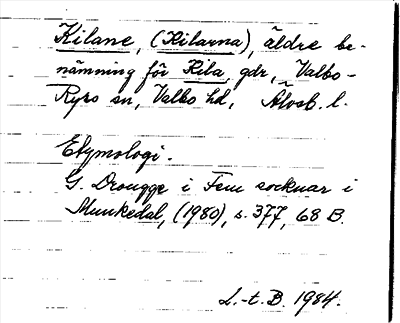 Kilane, (Kilarna), äldre be-
nämning för Kila, gdr, Valbo-
Ryrs sn, Valbo hd, Älvsb. l.
Etymologi.
G. Drougge i Fem socknar i
Munkedal, (1980), s. 377, 68 B.
L.-t. B. 1984.